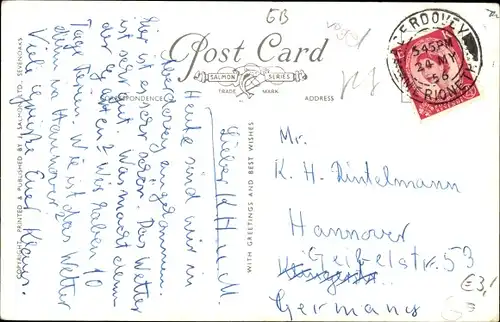 6B
Post Card
SALMON SERIES
TRADE MARK
CORRESPONDENCE
ADDRESS
ABERDOVEY
5 45 PM
20 MY
56
MERIONETH
Lieber K H u. M.
Heute sind wir in
Aberdovey angekommen.
Hier ist es sehr schön. Das Wetter
ist sehr gut. Was macht denn
der Garten? Wir haben 10
Tage Ferien. Wie ist das Wetter
in Hannover?
Viele Grüße Euer Klaus.
COPYRIGHT. PRINTED & PUBLISHED BY J. SALMON LTD., SEVENOAKS
WITH GREETINGS AND BEST WISHES
Mr.
K. H. Dintelmann
Hannover
Geibelstr. 53
Germany
€3,-
G